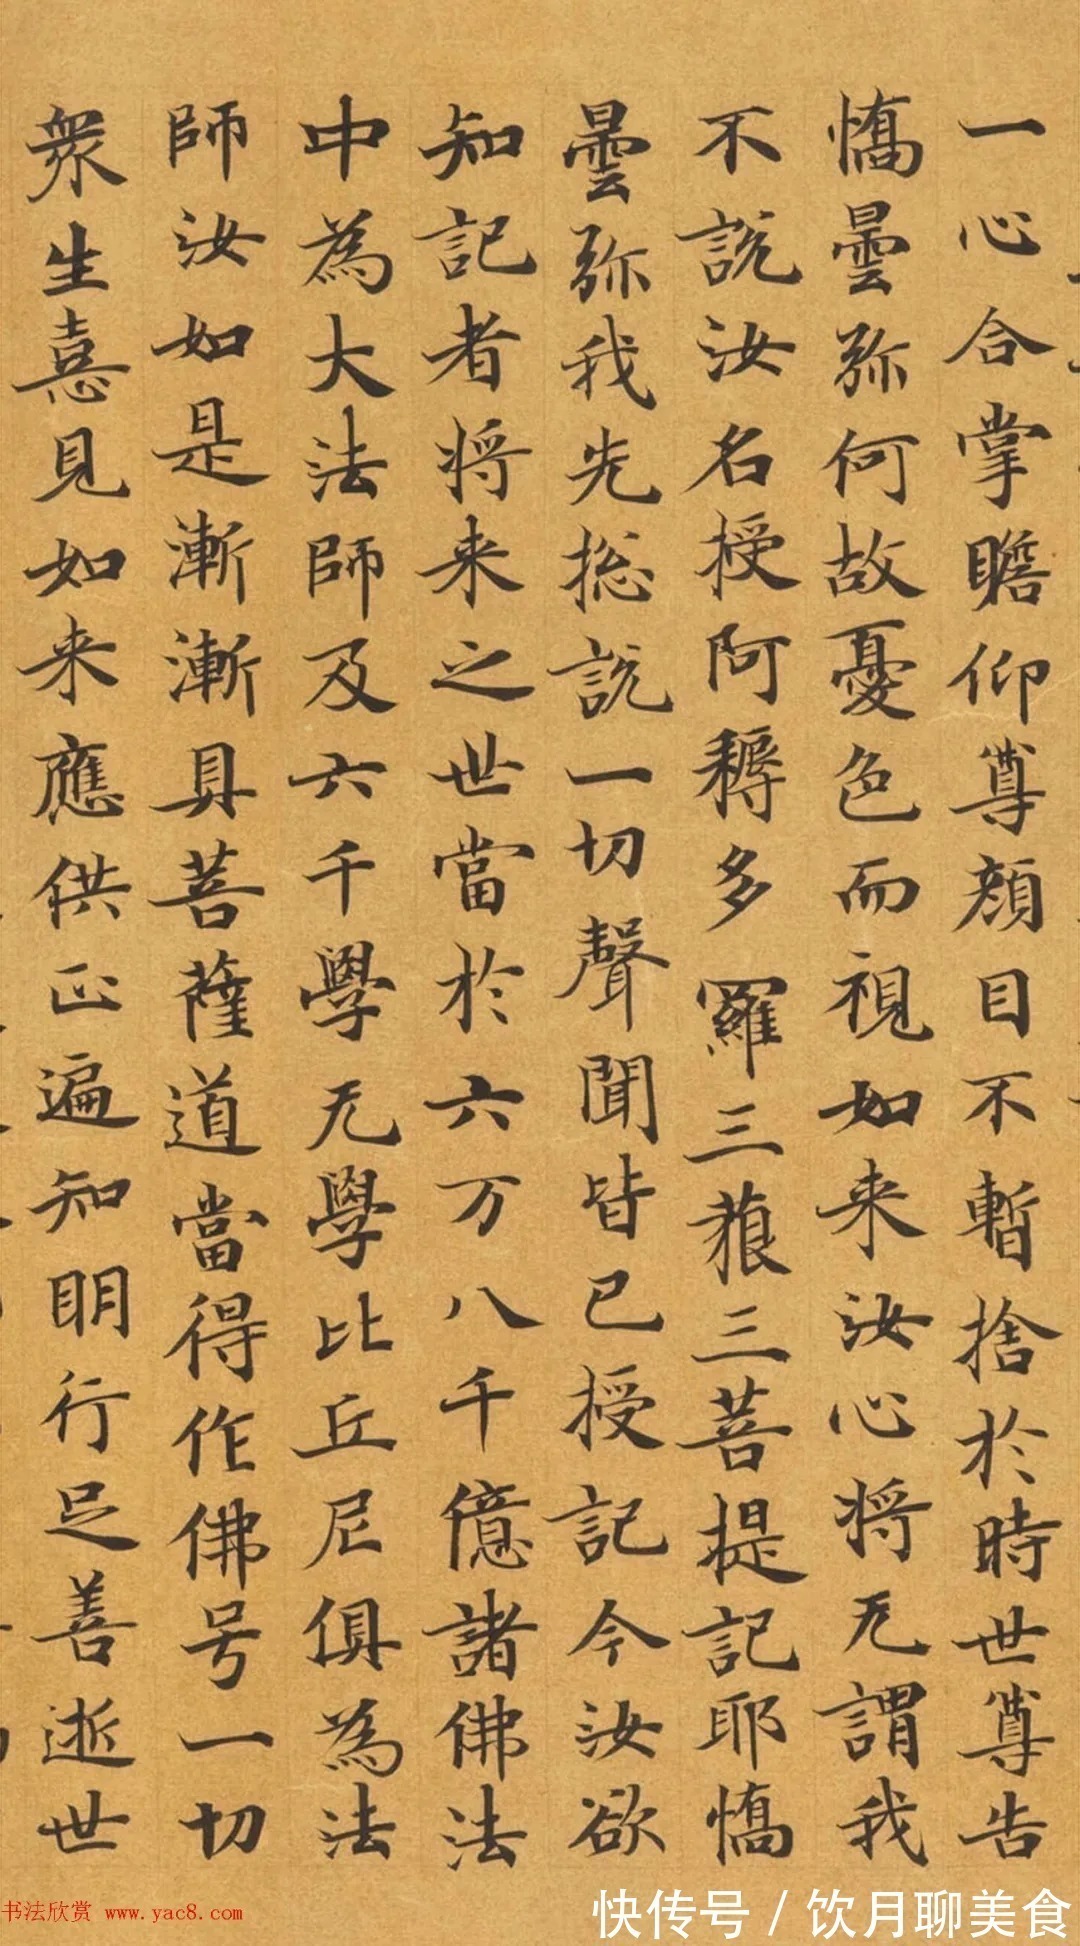 一心合掌瞻仰尊顏目不暫捨於時世尊告
憍曇弥何故憂色而視如来汝心将无謂我
不說汝名授阿耨多羅三藐三菩提記耶憍
曇弥我先捴說一切聲聞皆已授記今汝欲
知記者将来之世當於六万八千億諸佛法
中為大法師及六千學无學比丘尼俱為法
師汝如是漸漸具菩薩道當得作佛号一切
衆生憙見如来應供正遍知明行足善逝世
书法欣赏 www.yac8.com
快传号 / 饮月聊美食